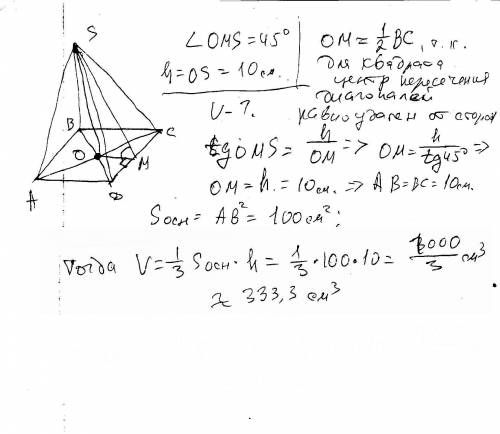 S
B
C
O
M
A
D
∠OMS = 45°
h = OS = 10 см.
OM = 1/2 BC, т.к.
для квадрата
центр пересечения
диагоналей
равноудален от сторон
V - ?
tg OMS = h/OM => OM = h/tg45° =>
OM = h = 10 см. => AB = BC = 10 см.
Sосн = AB² = 100 см²;
Тогда V = 1/3 Sосн · h = 1/3 · 100 · 10 = 1000/3 см³
≈ 333,3 см³